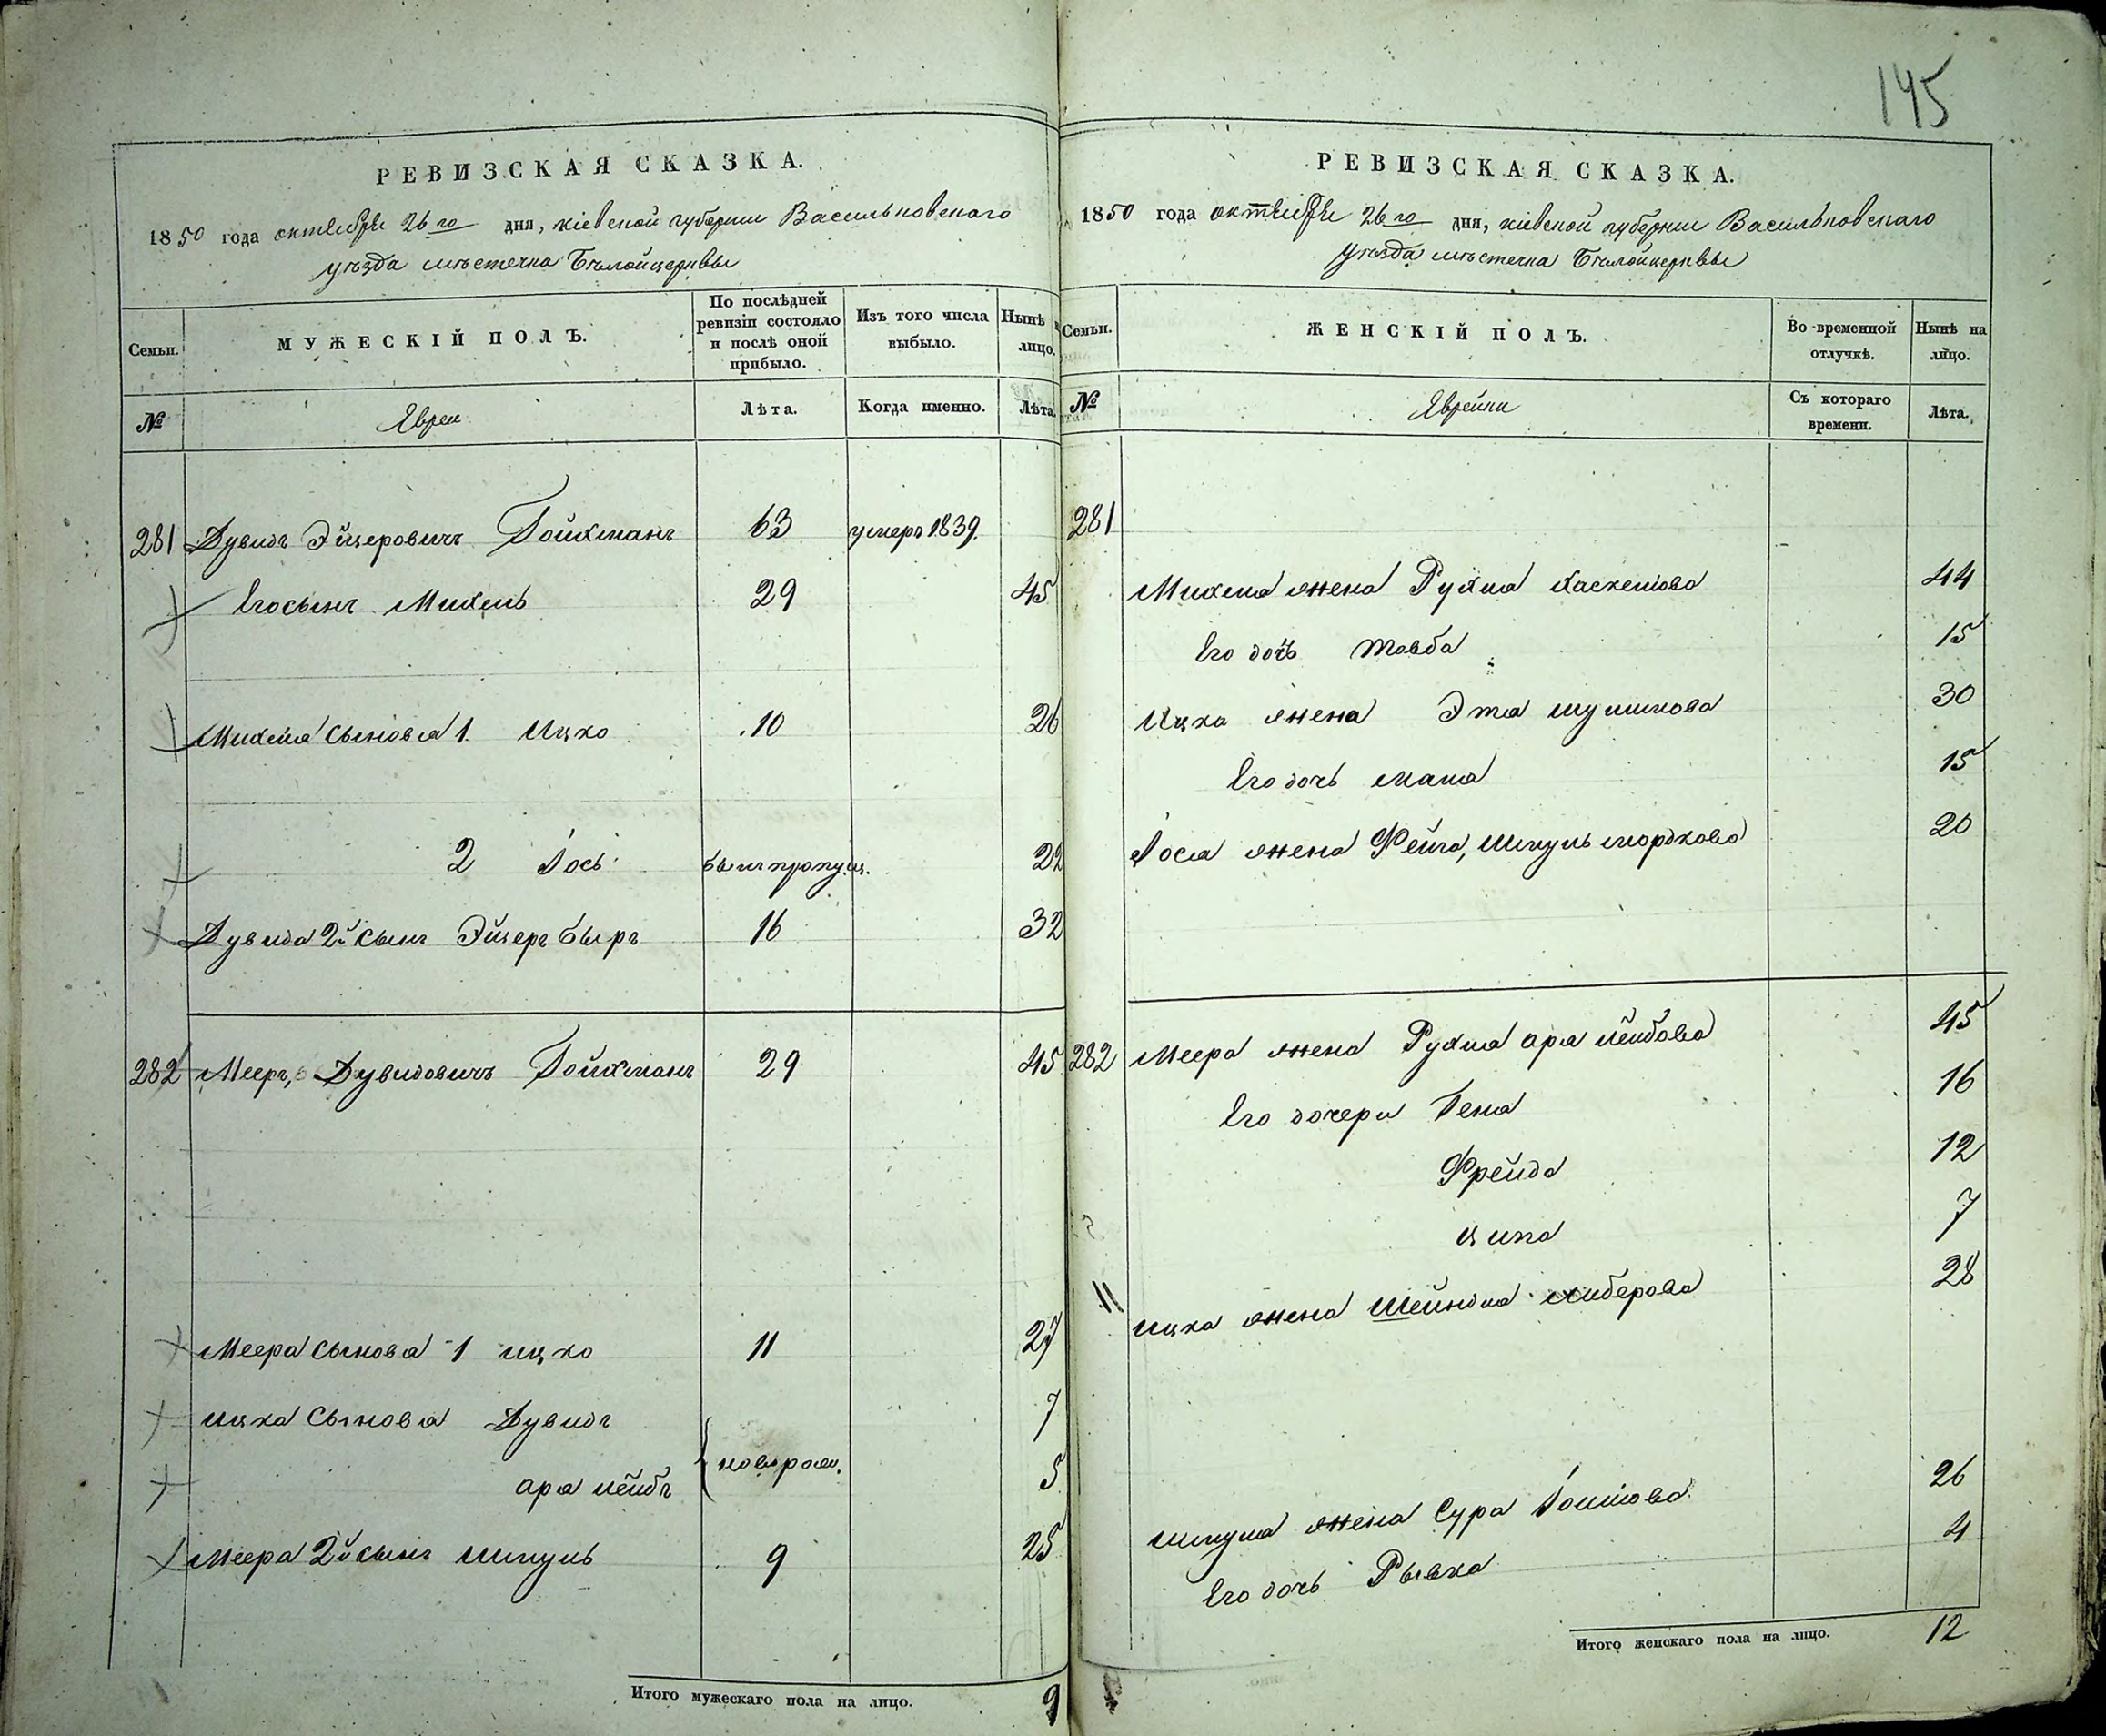 145
РЕВИЗСКАЯ СКАЗКА.
1850 года октября 26го дня, кіевской губерніи Васильковскаго
уѣзда мѣстечка Бѣлойцерквы
Семьи.
МУЖЕСКІЙ ПОЛЪ.
По послѣдней ревизіи состояло и послѣ оной прибыло.
Изъ того числа выбыло.
Нынѣ лицо.
№
Евреи
Лѣта.
Когда именно.
Лѣта.
281 Дувидъ Эйзеровичъ Гойхманъ 63 умеръ 1839.
Его сынъ Михель 29 45
Михеля сыновья 1. Ицко 10 26
2 Іось был пропущ. 22
Дувида 2й сынъ Эйзеръ Беръ 16 32
282 Мееръ, Дувидовичъ Гойхманъ 29 45
Меера сыновья 1 ицко 11 27
ицка сыновья Дувидъ 7
новорож.
ара лейбъ 5
Меера 2й сынъ шмуль 9 25
Итого мужескаго пола на лицо. 9
РЕВИЗСКАЯ СКАЗКА.
1850 года октября 26го дня, кіевской губерніи Васильковскаго
уѣзда мѣстечка Бѣлойцерквы
Семьи.
ЖЕНСКІЙ ПОЛЪ.
Во временной отлучкѣ.
Нынѣ на лицо.
№
Еврейки
Съ котораго времени.
Лѣта.
281
Михеля жена Рухля хаскелова 44
Его дочь товба 15
Ицка жена Эта шулимова 30
Его дочь малка 15
Іося жена Фейга, шмуль мордкова 20
282 Меера жена Рухля ара лейбова 45
Его дочери Геня 16
Фрейда 12
ципа 7
ицка жена Шейндля либерова 28
шмуля жена Сура 26
Его дочь Рывка 4
Итого женскаго пола на лицо. 12